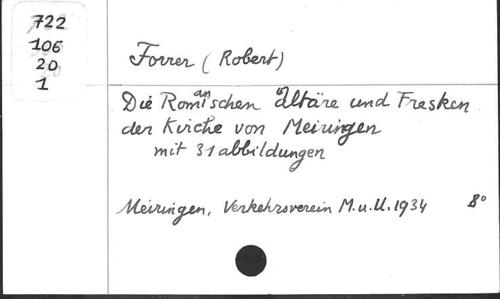 722
106
20
1
Forrer (Robert)
Die Romanischen Altäre und Fresken
der Kirche von Meiringen
mit 31 abbildungen
Meiringen, Verkehrsverein M.u.U. 1934 8°